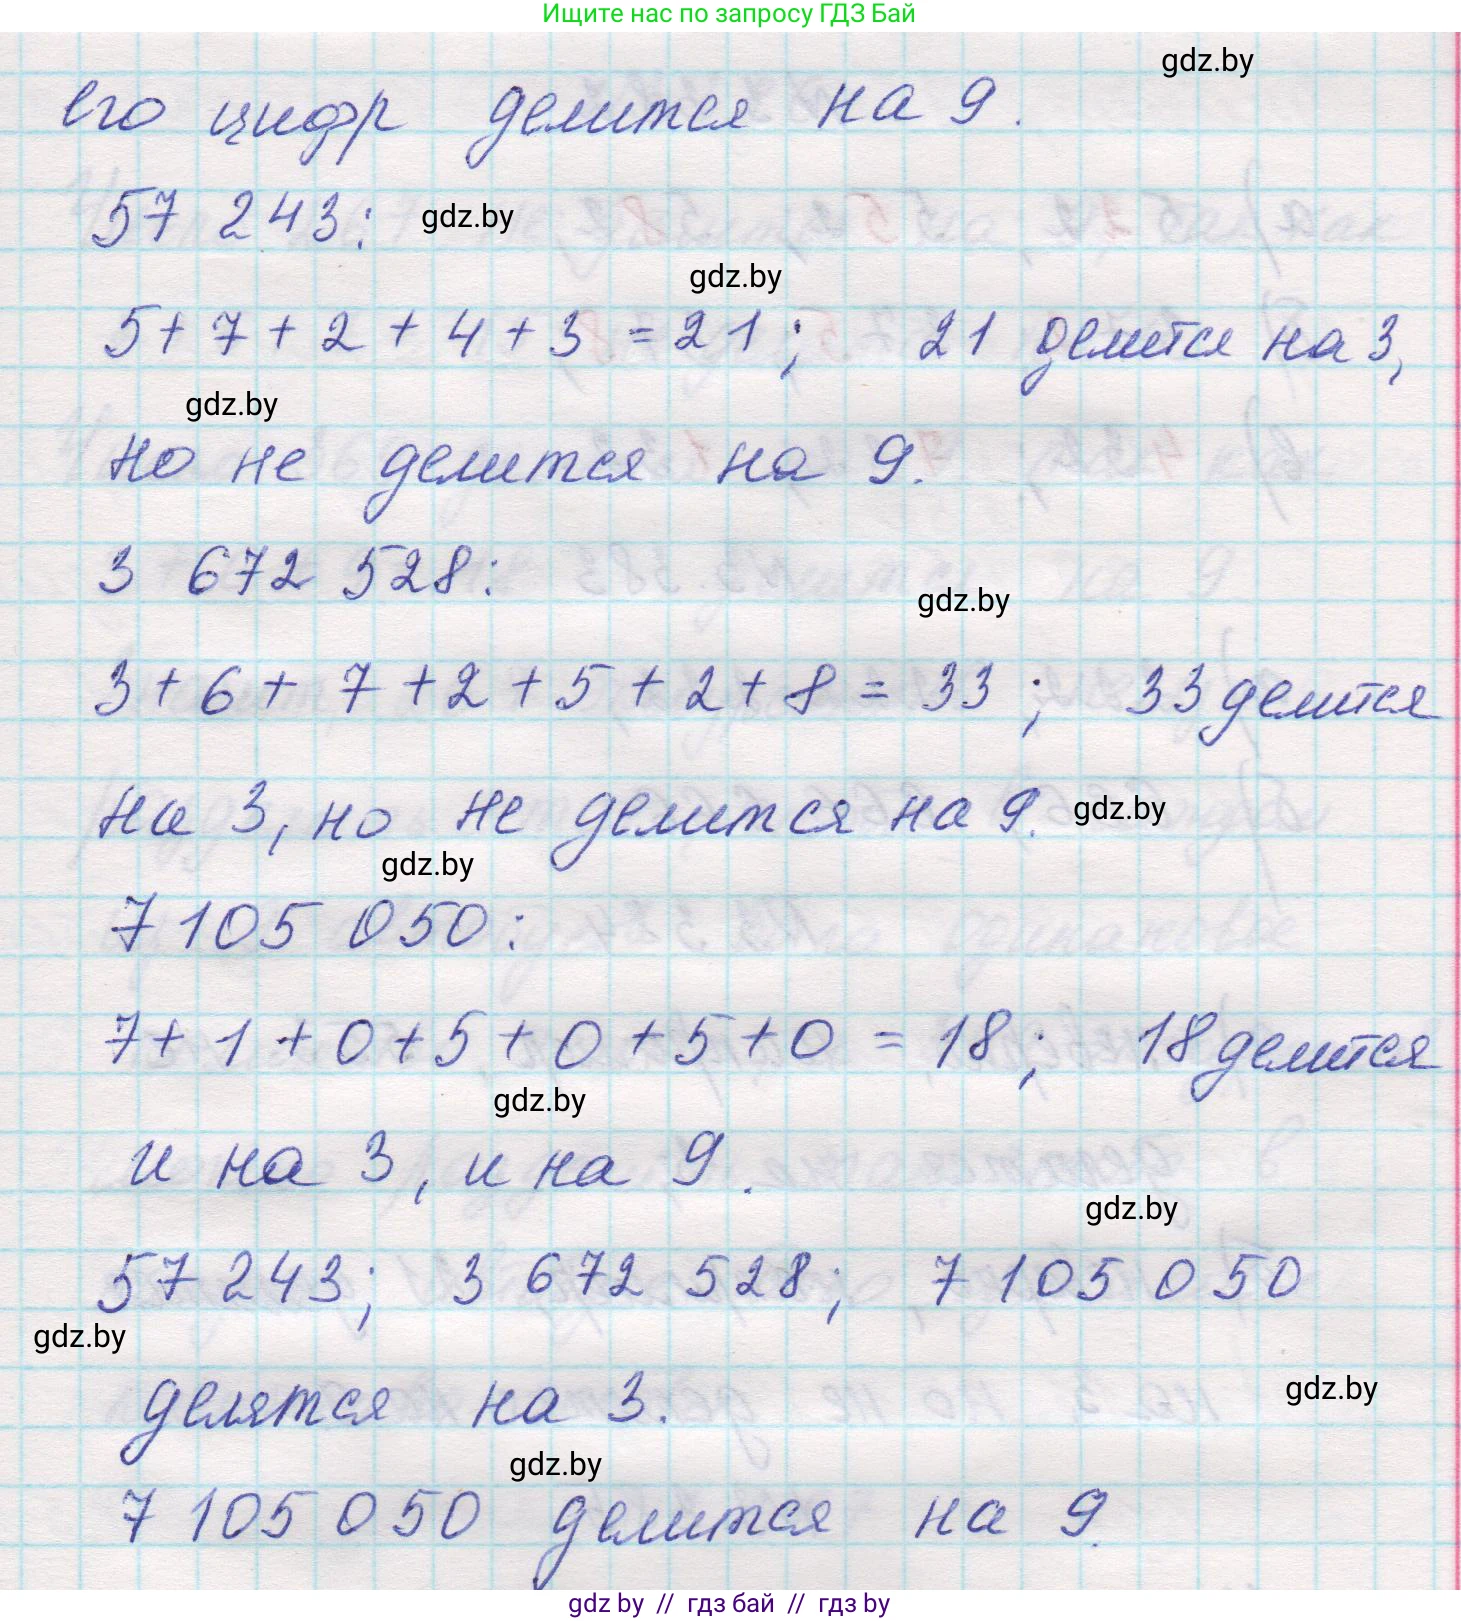 Ищите нас по запросу ГДЗ Бай
gdz.by
его цифр делится на 9.
57 243: gdz.by
gdz.by
5+7+2+4+3=21; 21 делится на 3,
gdz.by
но не делится на 9.
3 672 528:
gdz.by
3+6+7+2+5+2+8=33; 33 делится
на 3, но не делится на 9. gdz.by
gdz.by
7 105 050:
7+1+0+5+0+5+0=18; 18 делится
gdz.by
и на 3, и на 9.
gdz.by
57 243; 3 672 528; 7 105 050
gdz.by
делятся на 3. gdz.by
gdz.by
7 105 050 делится на 9.
gdz by // гдз бай // гдз by